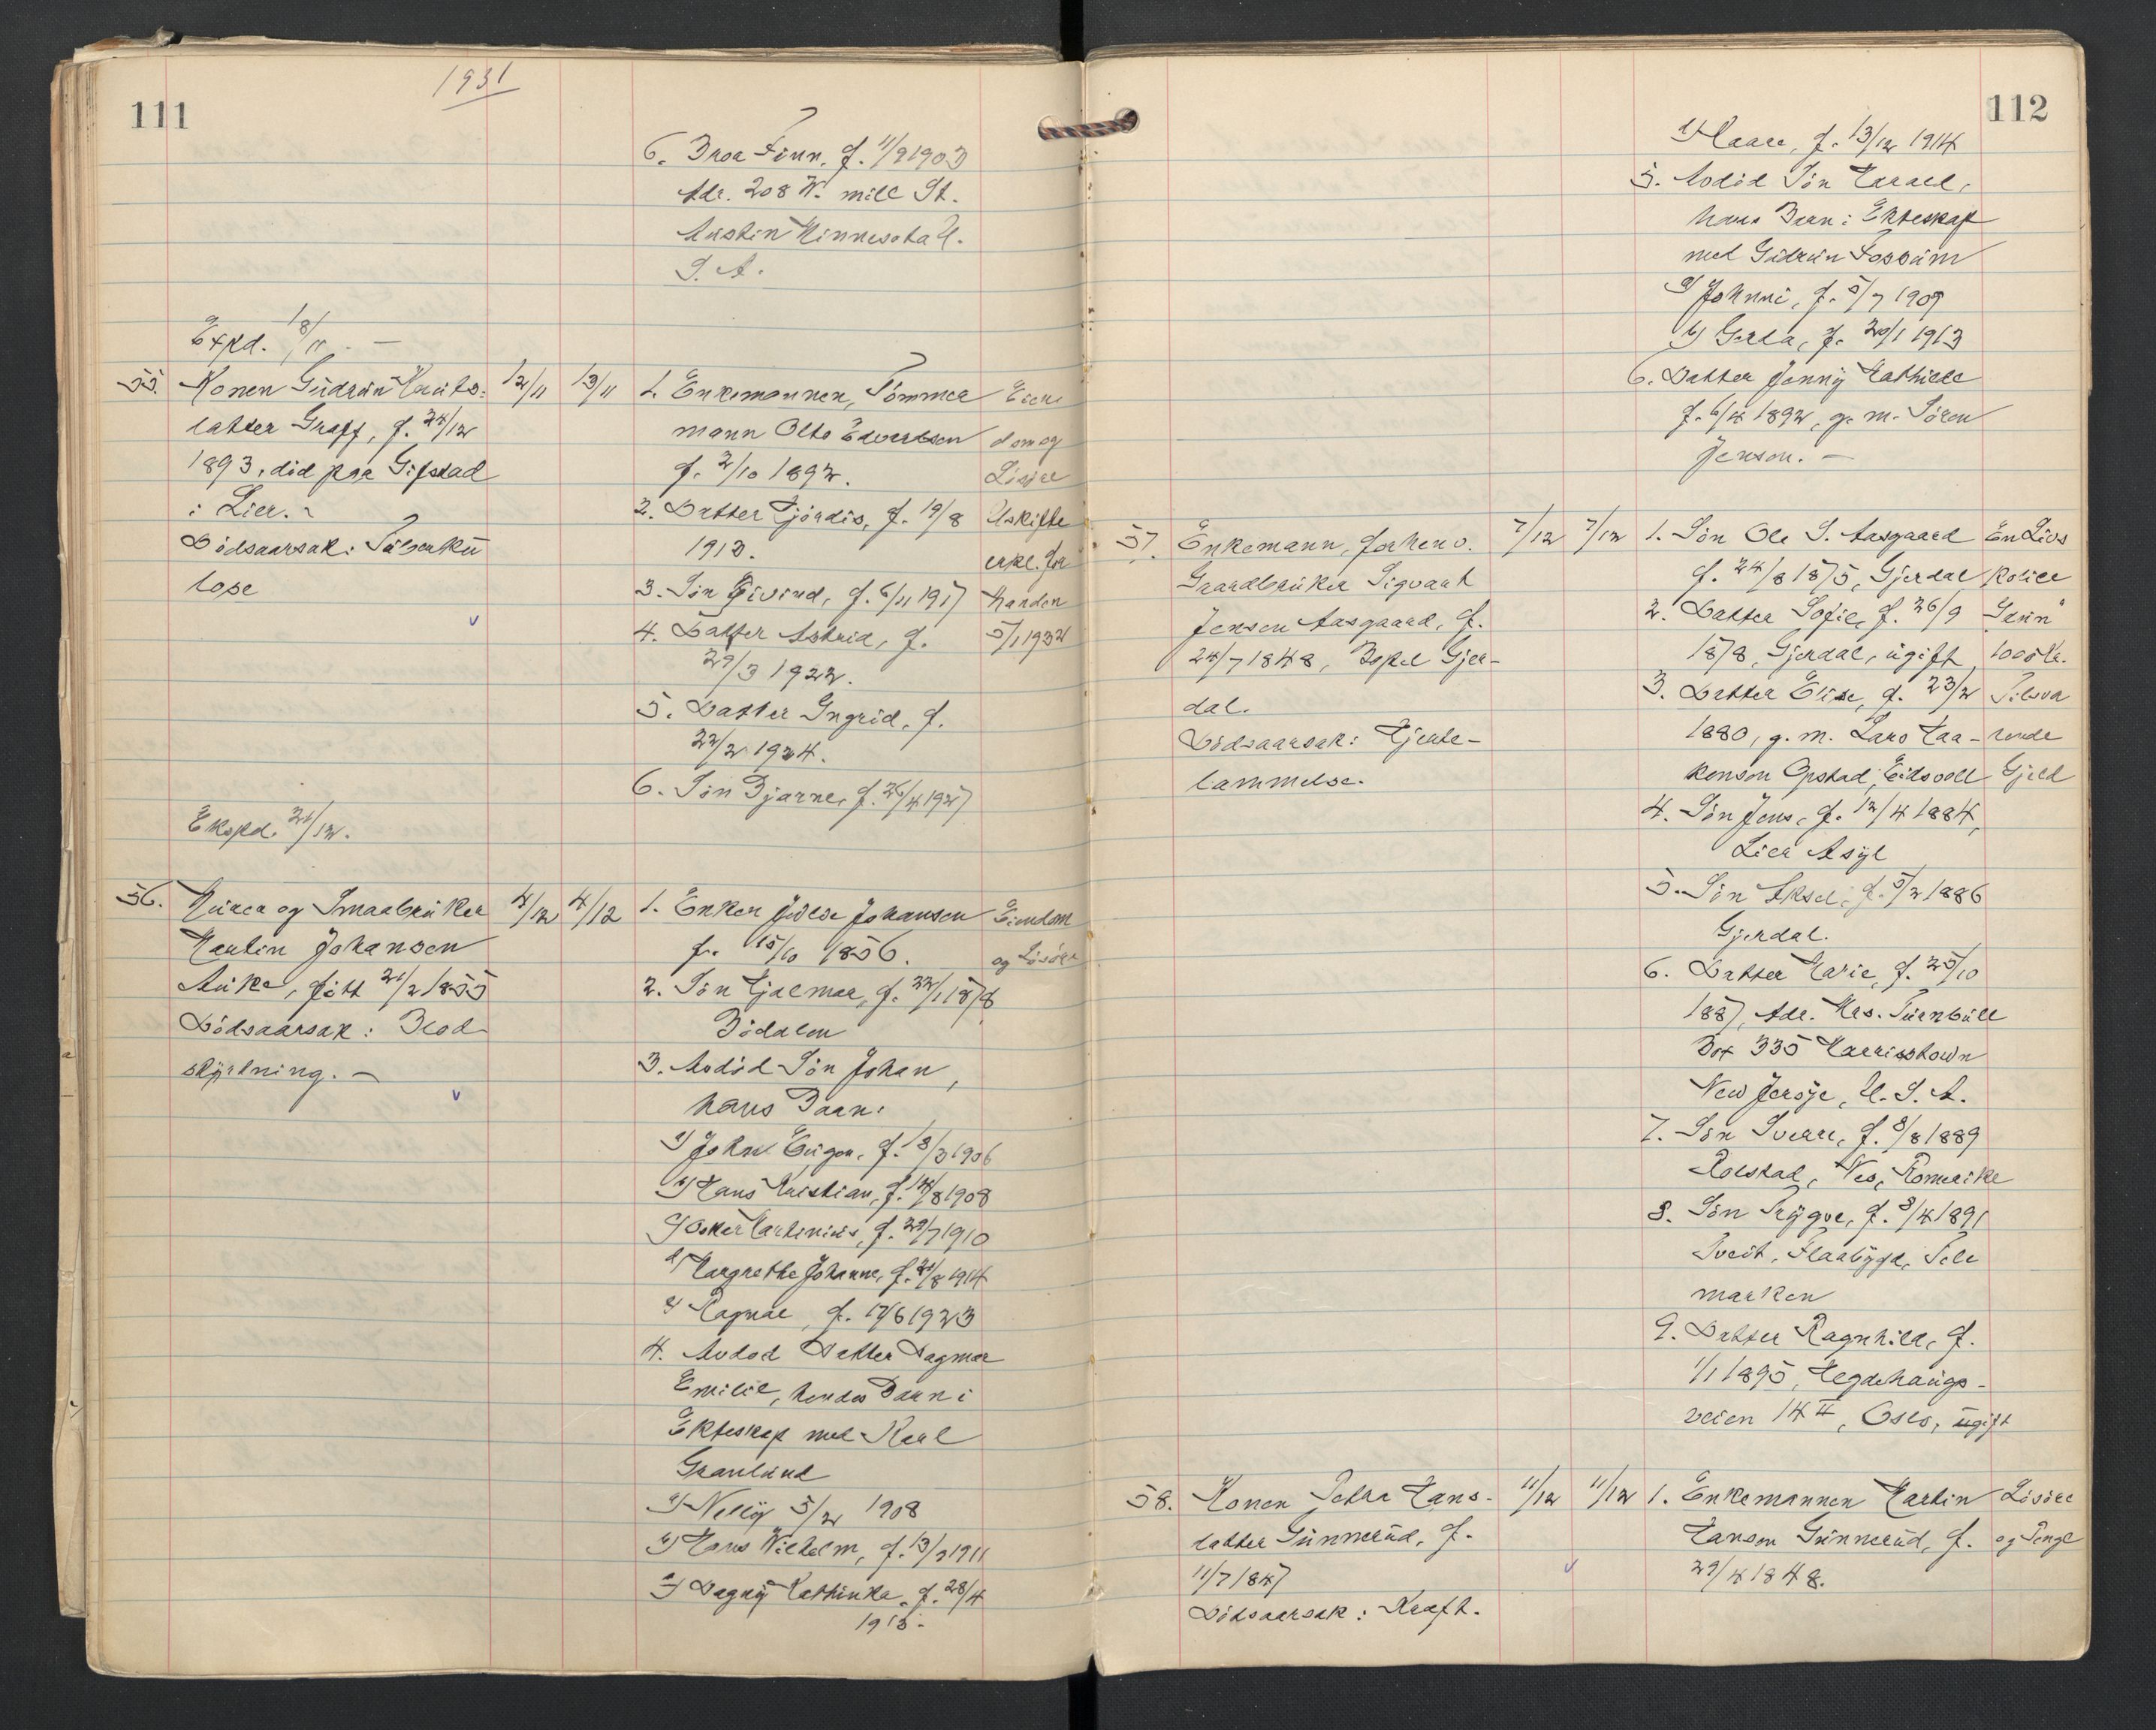 111
1931
6. Bror Finn, f. 11/9 1903
Adr. 208 W. mill St.
Austin Minnesota U.
S. A.
Expd. 18/11. —
55. Konen Gudrun Knuts- 12/11 13/11
datter Graff, f. 24/12
1893, död paa Gifstad
i Lier. ~
Dödsaarsak: Tuberku
lose
1. Enkemannen, Tömmer
mann Otto Edvardsen
f. 2/10 1892.
2. Datter Hjördis, f. 19/8
1913.
3. Sön Eivind, f. 6/11 1917
4. Datter Astrid, f.
29/3 1922.
5. Datter Ingrid, f.
22/2 1924.
6. Sön Bjarne, f. 26/4 1927
Eien
dom og
Lösöre
Uskifte
erkl. for
handen
5/1 1932
Ekspd. 21/12.
56. Murer og Smaabruker 4/12 4/12
Martin Johansen
Auke, född 21/2 1855
Dödsaarsak: Blod-
styrtning. —
1. Enken Julie Johansen
f. 15/10 1856.
2. Sön Hjalmar, f. 22/1 1878
Bödalen
3. Avdöd Sön Johan,
hans Barn:
a) John Eugen, f. 18/3 1906
b) Hans Kristian, f. 14/8 1908
c) Osker Martinius, f. 29/7 1910
d) Margrethe Johanne, f. 21/8 1914
e) Ragnar, f. 17/6 1923
4. Avdöd Datter Dagmar
Emilie, hendes Barn i
Ekteskap med Karl
Granlund
a) Nelly 5/2 1908
b) Hans Wilhelm, f. 13/2 1911
c) Dagny Kathinka, f. 28/4
1913.
Eiendom
og Lösöre
112
d) Kaare, f. 13/12 1914
5. Avdöd Sön Harald,
hans Barn i Ekteskap
med Gudrun Fossum
a) Johnni, f. 5/7 1909
b) Gerda, f. 20/1 1913
6. Datter Jenny Mathilde
f. 6/4 1892, g. m. Sören
Jenson. —
57. Enkemann, forhenv. 7/12 7/12
Gaardbruker Sigvart
Jensen Aasgaard, f.
24/7 1848, Bopel Gjer-
dal.
Dödsaarsak: Hjerte-
lammelse.
1. Sön Ole S. Aasgaard
f. 24/8 1875, Gjerdal
2. Datter Sofie, f. 26/9
1878, Gjerdal, ugift
3. Datter Elise, f. 23/2
1880, g. m. Lars Haa-
kenson Opstad, Eidsvoll
4. Sön Jens, f. 12/4 1884,
Lier Asyl
5. Sön Aksel, f. 5/2 1886
Gjerdal.
6. Datter Marie, f. 25/10
1887, Adr. Mrs. Turnbull
Box 335 Marristown
New Jersye, U. S. A.
7. Sön Sverre, f. 8/8 1889
Rolstad, Nes, Romerike
8. Sön Trygve, f. 8/4 1891
Tveit, Flaabygd, Tele
marken
9. Datter Ragnhild, f.
1/1 1895, Hegdehaugs-
veien 14 II, Oslo, ugift
En Livs
Police
"
1000 kr.
Tilsva
rende
Gjeld
58. Konen Petra Hans- 11/12 11/12
datter Gunnerud, f.
11/7 1847
Dödsaarsak: Kræft.
1. Enkemannen Martin
Hanson Gunnerud, f.
29/4 1848.
Lösöre
og Penge